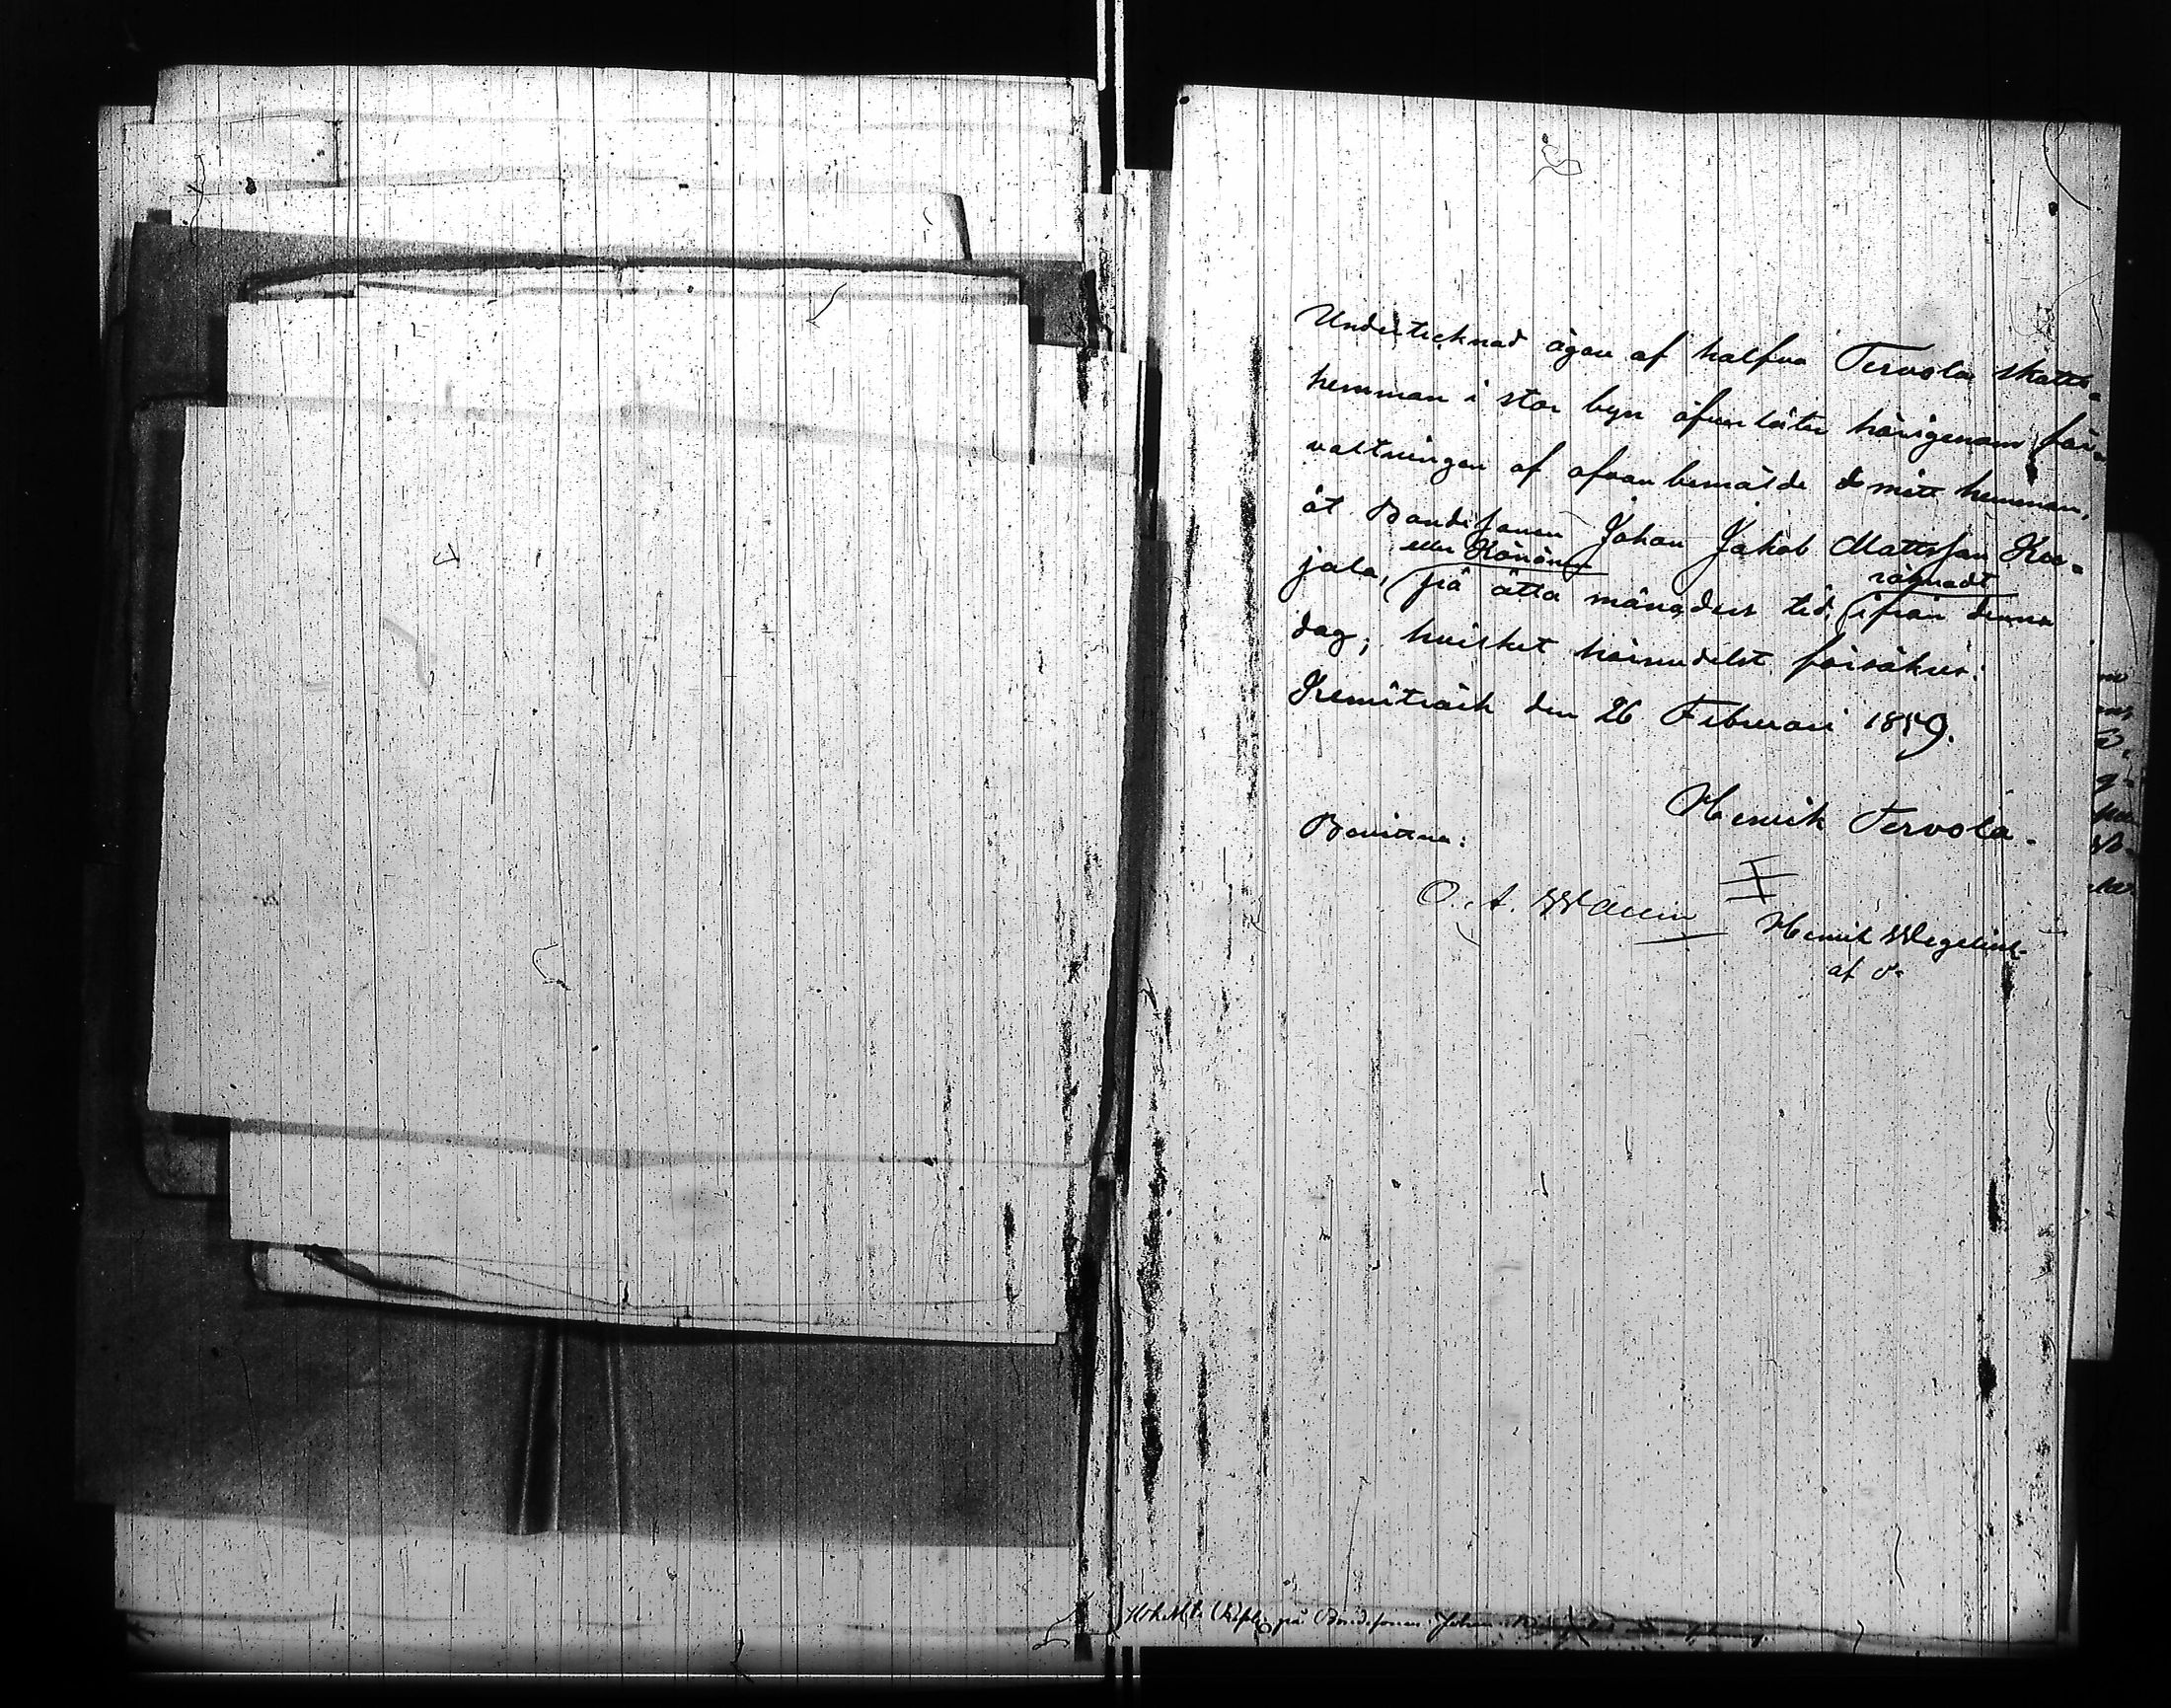 Undertecknad ägare af halfva Tervola skatte-
hemman i stor byn öfverlåter härigenom för-
valtningen af ofvanbemälde mitt hemman,
åt Bondesonen Johan Jakob Mattsson Koo-
eller Könönen räknadt
jala, på åtta månaders tid, ifrån denna
dag; hvilket härmedelst försäkras:
Kemiträsk den 26 Februari 1859.
Henrik Tervola.
Bevittna:
O. A. Wallin
Henrik Wegelius.
af d:
på Bondesonen Johan